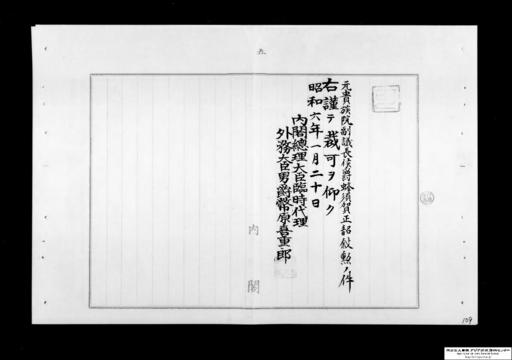 九
元貴族院副議長侯爵蜂須賀正韶敍勲ノ件
右謹テ裁可ヲ仰ク
昭和六年一月二十日
內閣總理大臣臨時代理
外務大臣男爵幣原喜重郎
内閣
109